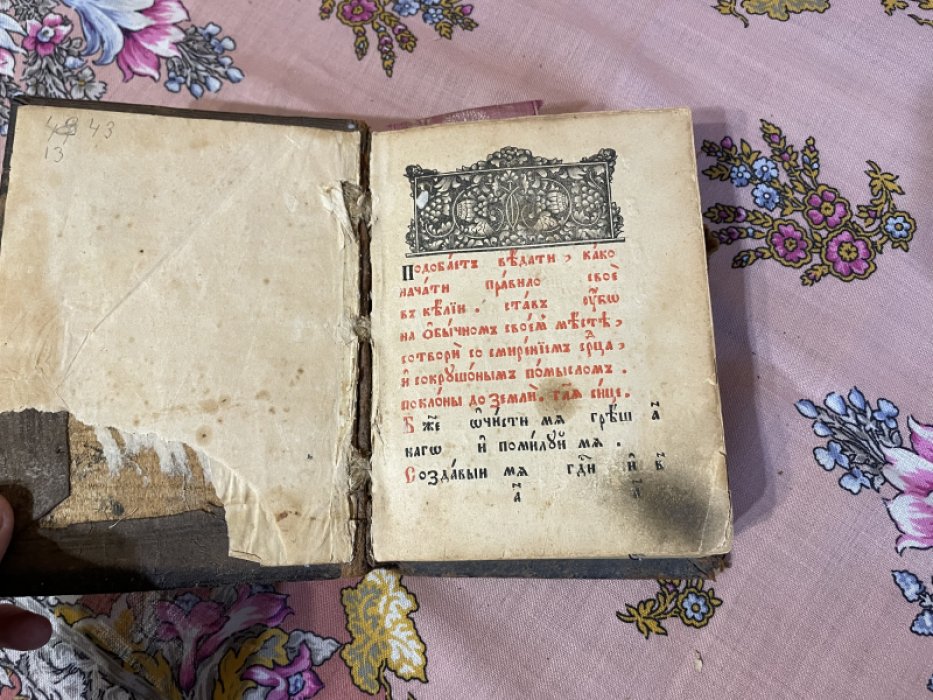 48 43
13
Подоба́етъ вѣ́дати, ка́ко
нача́ти пра́вило своѐ
въ кѣ́лїи. ста́въ ᲂу҆́бѡ
на ѻ҆бы́чномъ свое́мъ мѣ́стѣ,
сотворѝ со смире́нїемъ срⷣца,
и҆ сокруше́нымъ по́мысломъ.
покло́ны до землѝ. гл҃ѧ си́це.
Бж҃е ѡ҆чи́сти мѧ грѣ́ш
наго и҆ поми́лꙋй мѧ. а҃
Созда́выи мѧ гдⷭ҇и и҆ в҃
а҃